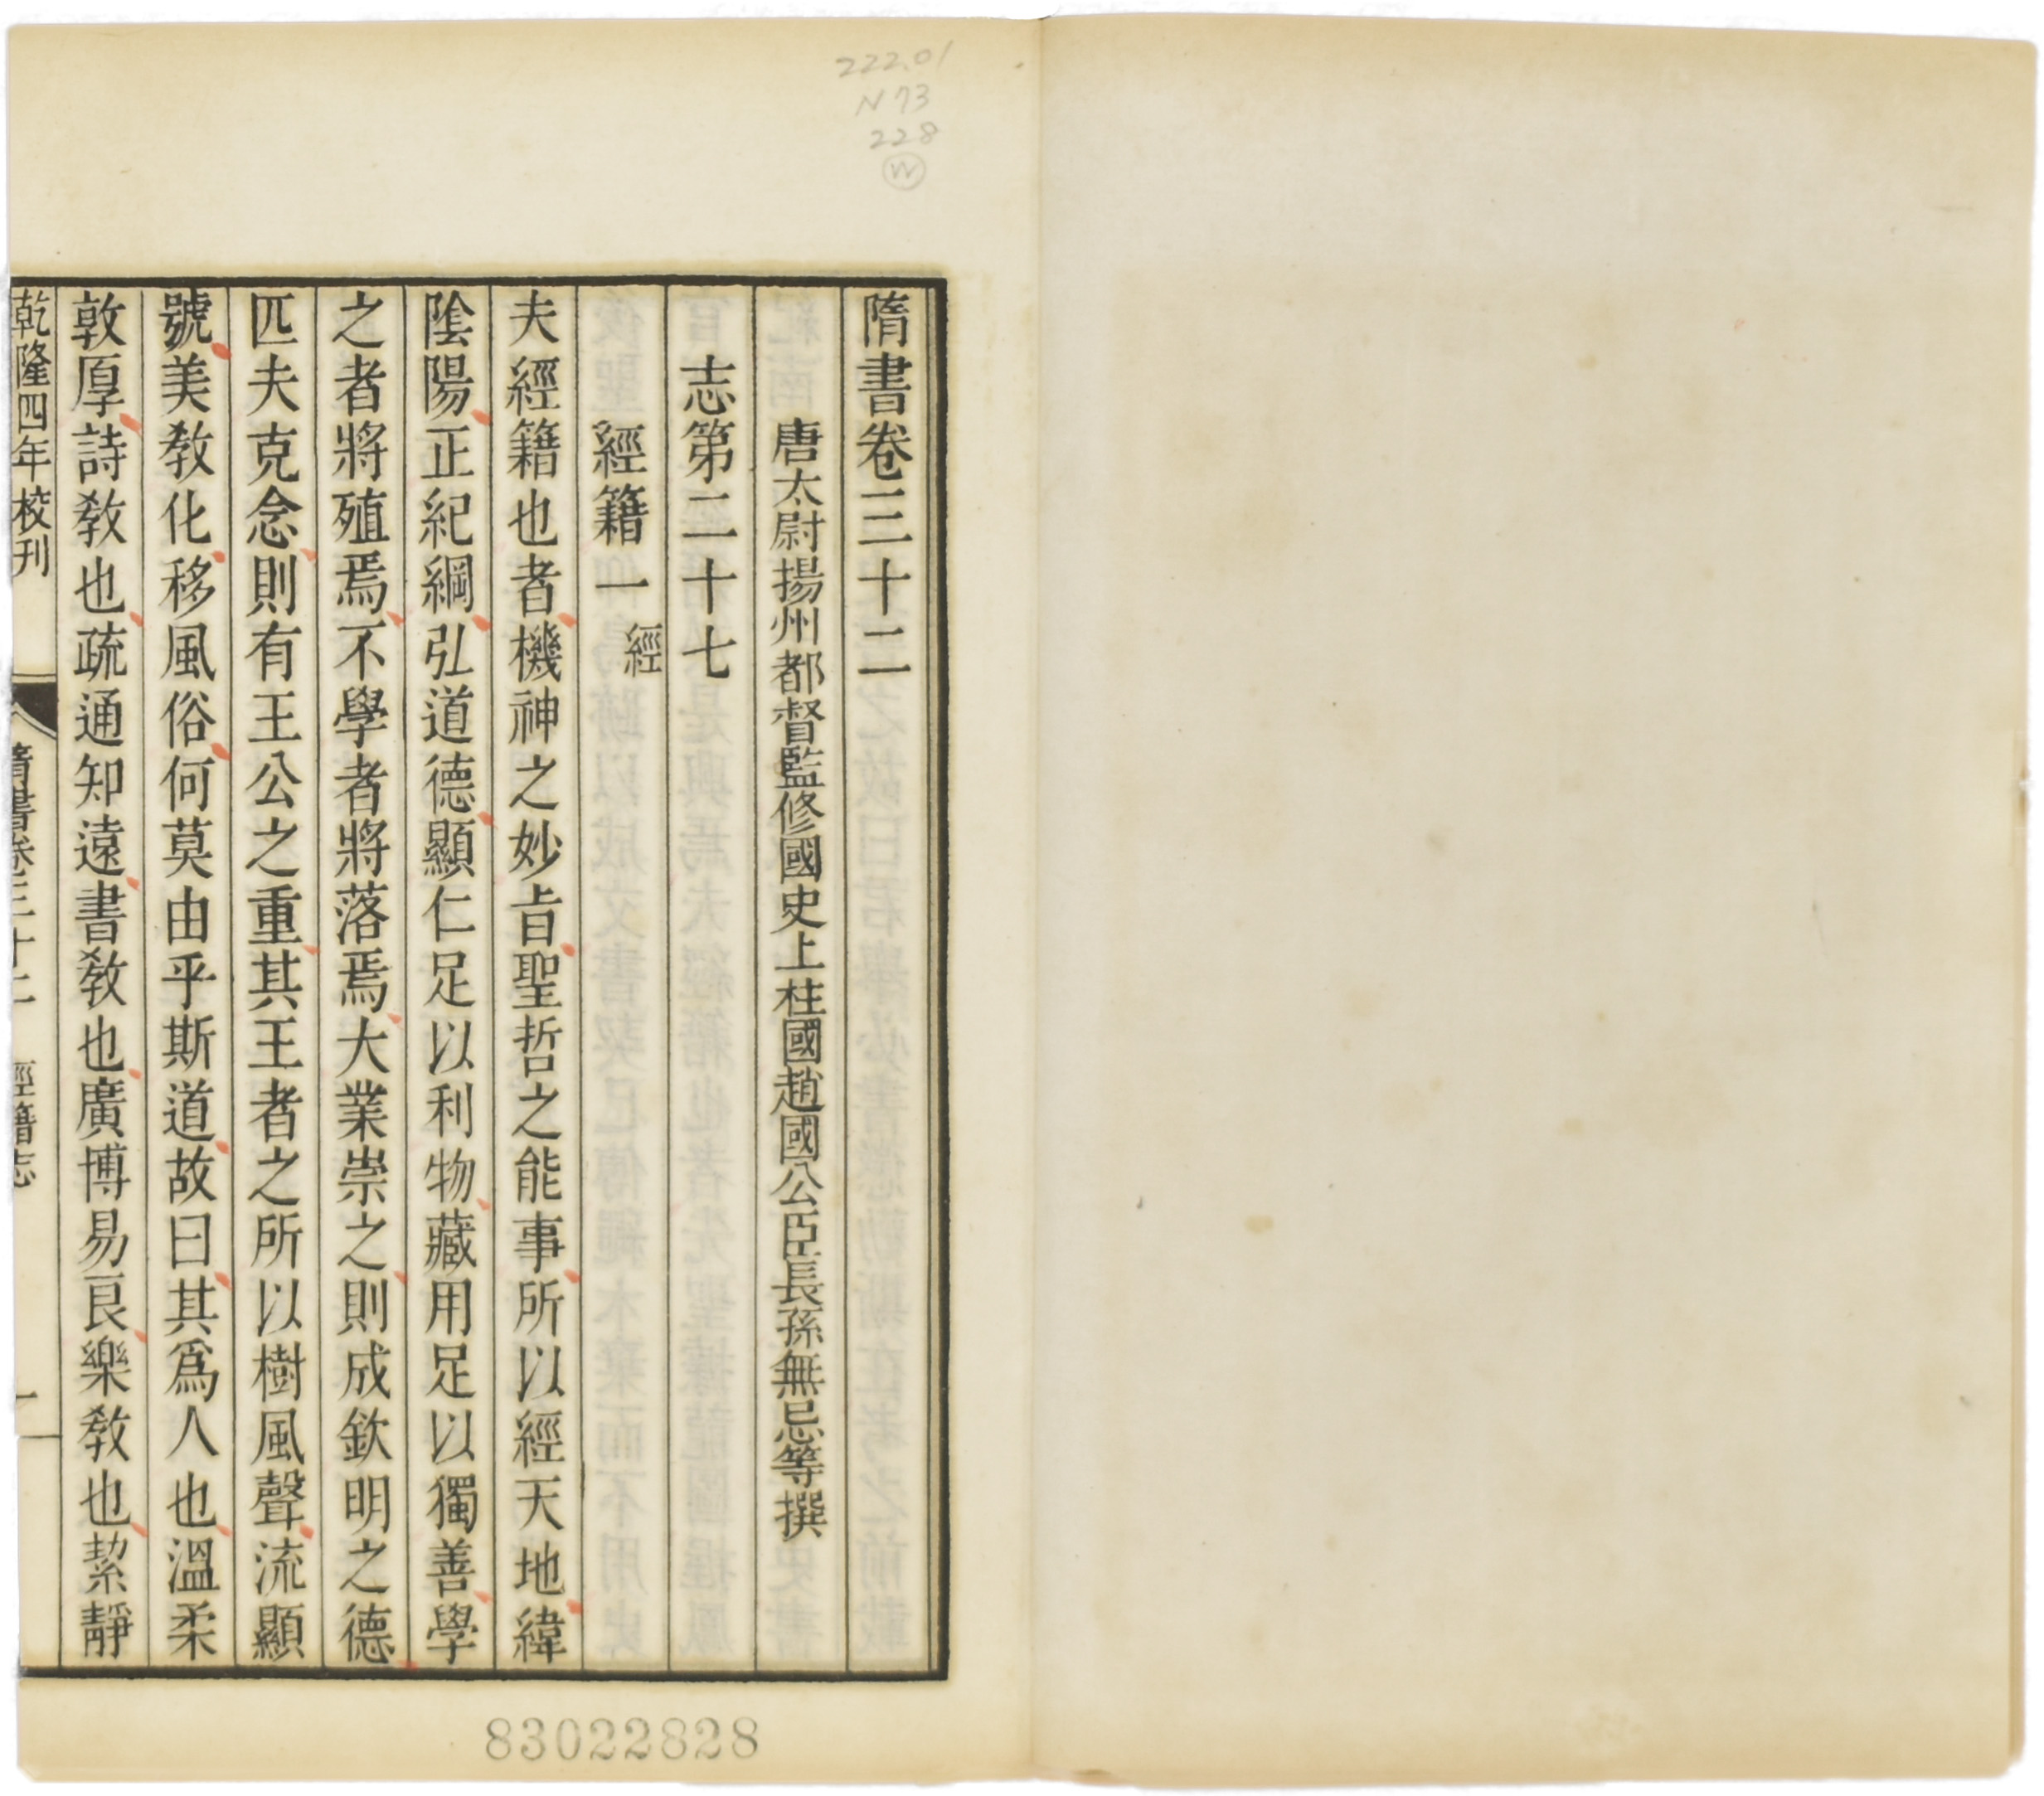 222.01
N73
228
W
隋書卷三十二
唐太尉揚州都督監修國史上柱國趙國公臣長孫無忌等撰
志第二十七
經籍一 經
夫經籍也者機神之妙㫖聖哲之能事所以經天地緯
陰陽正紀綱弘道德顯仁足以利物藏用足以獨善學
之者將殖焉不學者將落焉大業崇之則成欽明之德
匹夫克念則有王公之重其王者之所以樹風聲流顯
號美敎化移風俗何莫由乎斯道故曰其爲人也溫柔
敦厚詩敎也疏通知遠書敎也廣博易良樂敎也絜靜
乾隆四年校刊 隋書卷三十二 經籍志 一
83022828